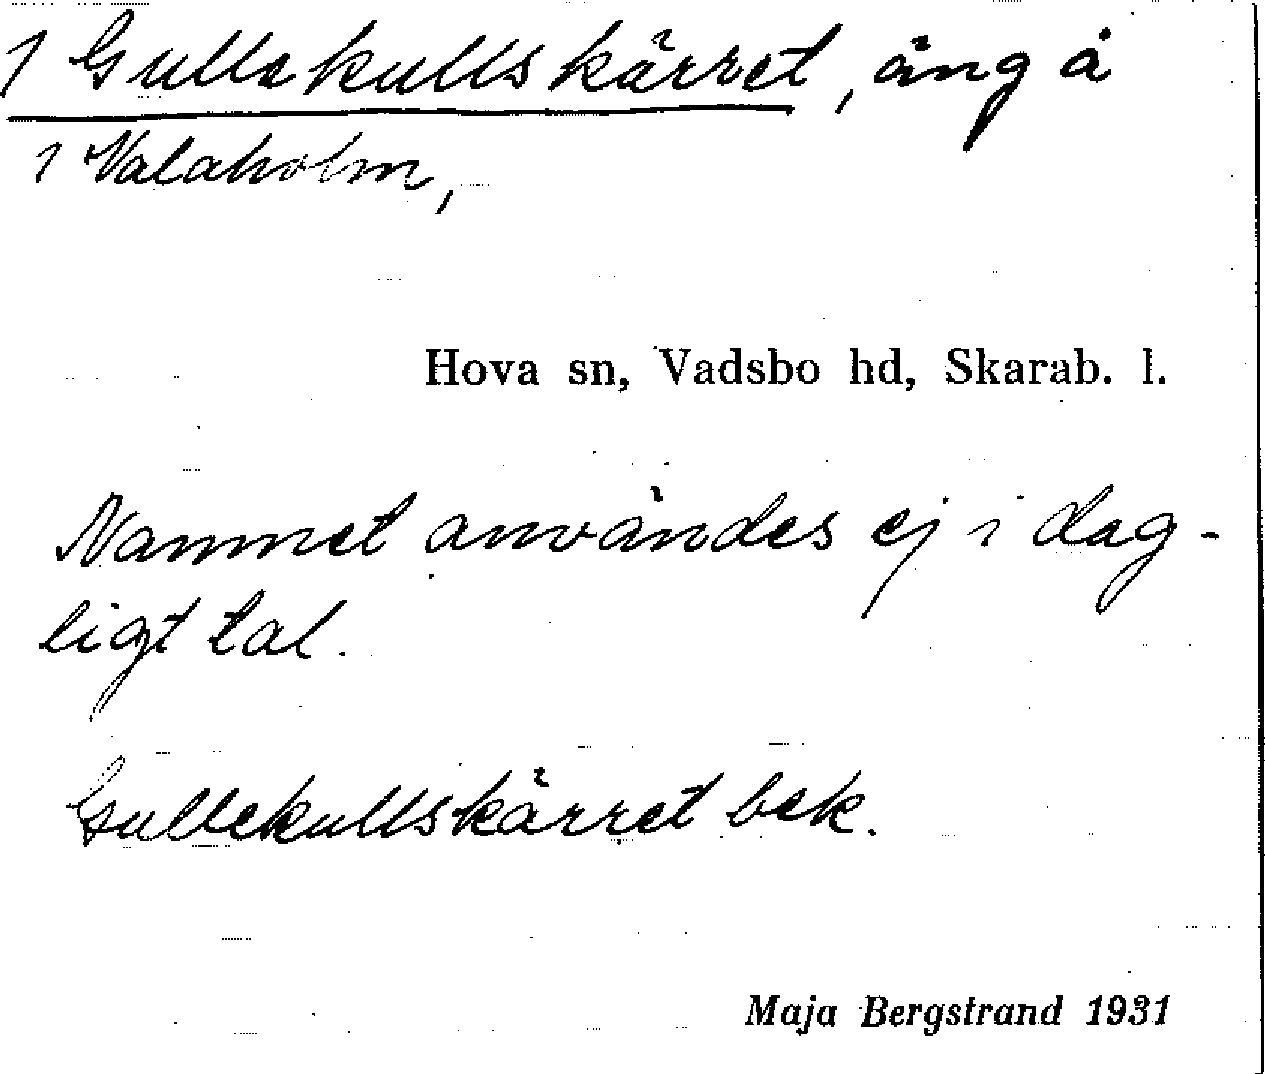 1 Gullekullskärret, äng å
1 Valaholm,
Hova sn, Vadsbo hd, Skarab. l.
Namnet användes ej i dag-
ligt tal.
Gullekullskärret bek.
Maja Bergstrand 1931